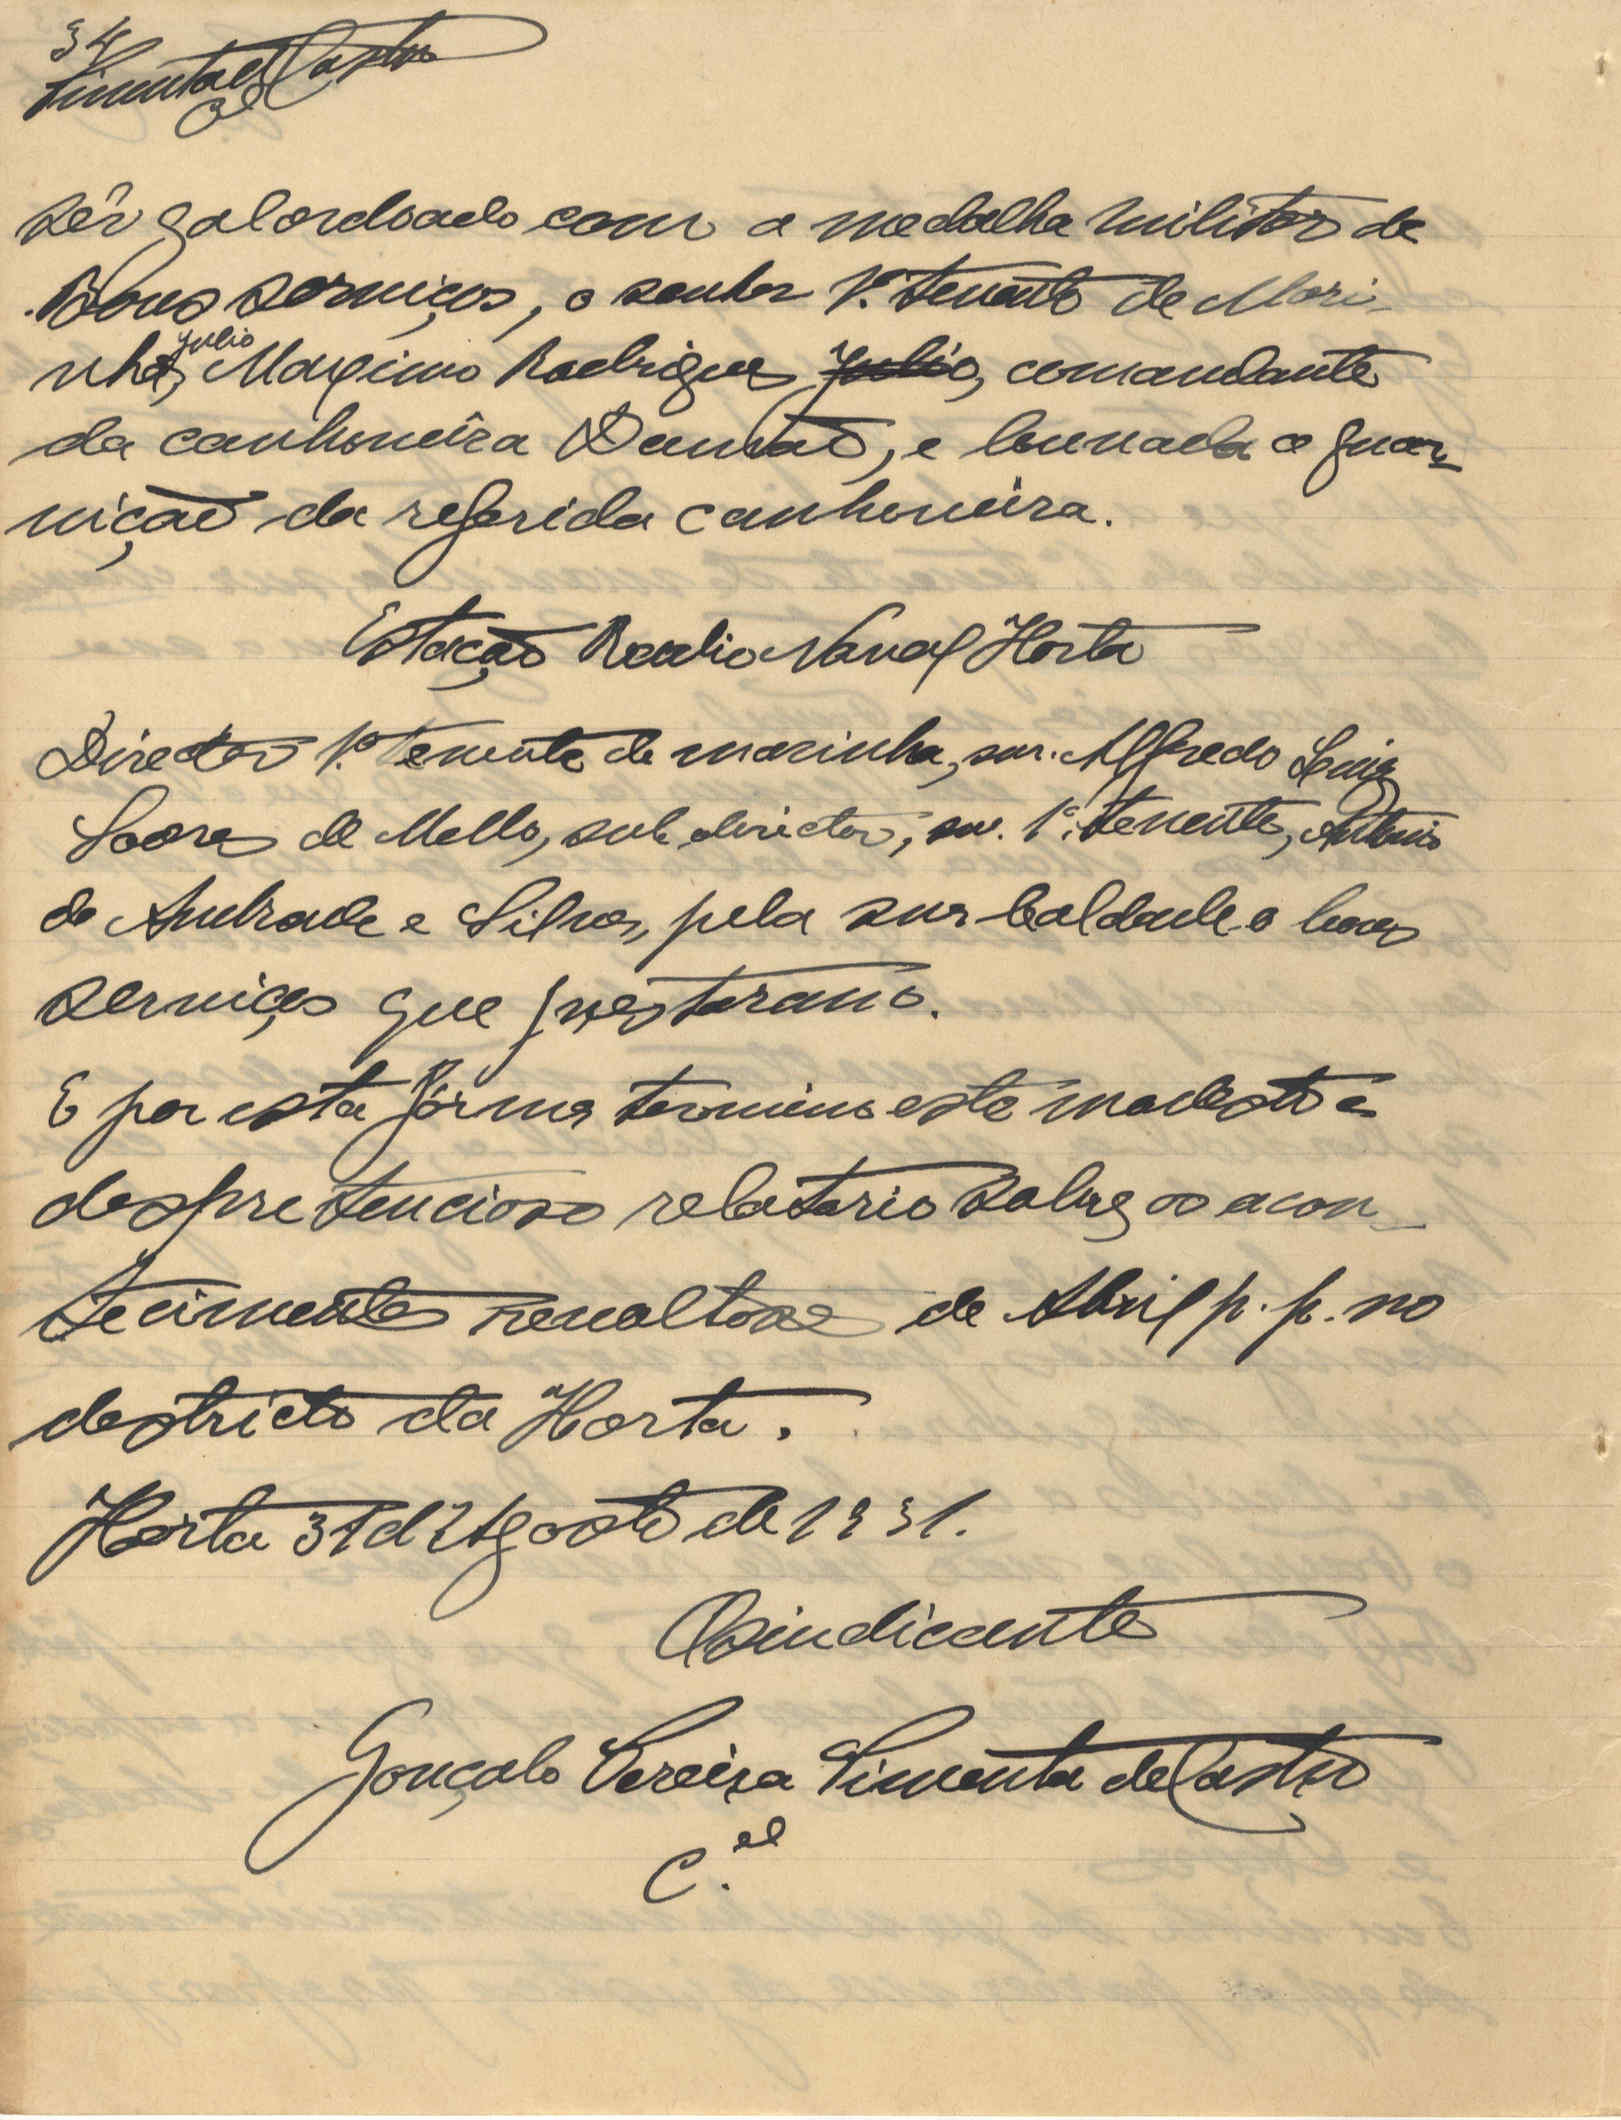 34
Pimenta de Castro
Cel
sêr galordoado com a medalha militar de
Bons serviços, o senhor 1º. tenente de Mari-
nha, Julio Maximo Rodrigues Julio, comandante
da canhoneira Damão, e louvada a guar-
nição da referida canhoneira.
Estação Radio Naval Horta
Director 1º. Tenente de marinha, snr. Alfredo Luiz
Soares de Mello, sub director, snr. 1º. tenente, Antonio
de Andrade e Silva, pela sua lealdade e bons
serviços que prestaram.
E por esta fórma termino este modesto e
despretencioso relatorio sobre os acon-
tecimentos revoltosos de Abril p. p. no
destricto da Horta.
Horta 31 de Agosto de 1931.
O sindicante
Gonçalo Pereira Pimenta de Castro
C.el